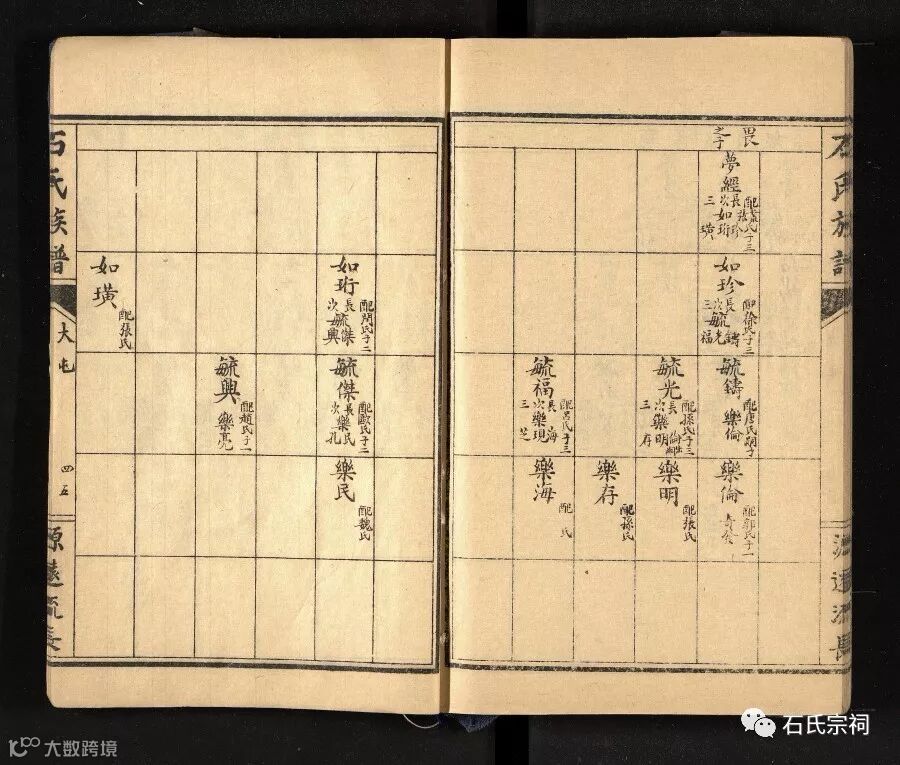 畏
之子
夢經
配袁氏子三
長如珍
次如珩
三璜
如珍
配徐氏子三
長毓鑄
次毓光
三福
毓鑄
配唐氏嗣子
樂倫
毓光
配孫氏子三
長倫出嗣
次樂明
三存
毓福
配呂氏子三
長海
次樂現
三芝
樂倫
配郭氏子一
樂明
配張氏
樂存
配孫氏
樂海
配氏
如珩
配閆氏子二
長毓傑
次毓興
毓傑
配歐氏子二
長樂民
次孔
毓興
配趙氏子一
樂亮
樂民
配魏氏
如璜
配張氏
石氏族譜
大屯
四五
源遠流長
石氏宗祠
大数跨境